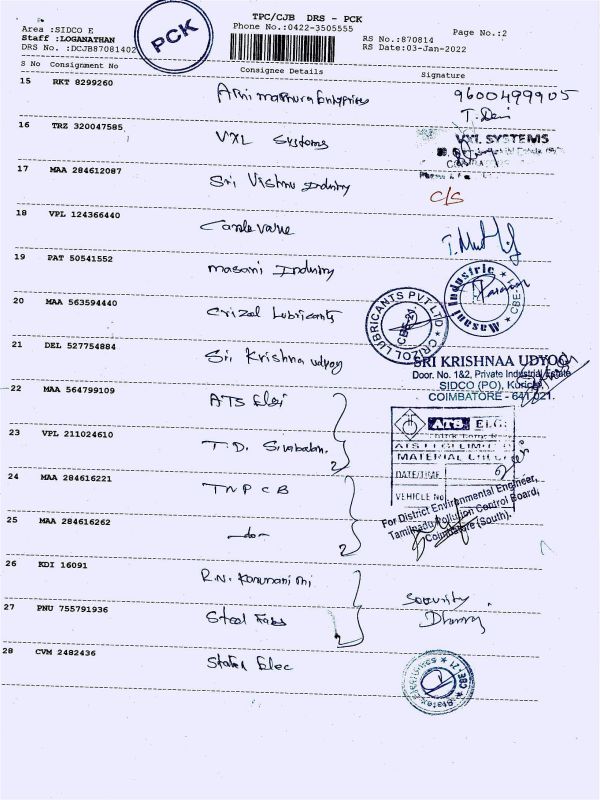 TPC/CJB DRS - PCK
Phone No.:0422-3505555
Page No.:2
Area :SIDCO E
Staff :LOGANATHAN
DRS No. :DCJB87081402
PCK
RS No.:870814
RS Date:03-Jan-2022
S No Consignment No Consignee Details Signature
15 RKT 8299260 9600499905
T. Devi
16 TRZ 320047585 VXL Systems VXL SYSTEMS
17 MAA 284612087 Sri Vishnu Industry C/S
18 VPL 124366440
19 PAT 50541552 masani Industry Masani Industrie CBE
20 MAA 563594440 Crizol Lubricants CRIZOL LUBRICANTS PVT LTD CBE-21.
21 DEL 527754884 Sri Krishna udyog SRI KRISHNAA UDYOG
Door. No. 1&2, Private Industrial Estate
SIDCO (PO), Kurichi,
COIMBATORE - 641 021.
22 MAA 564799109 ATS Elgi ATS ELGI
23 VPL 211024610 T.D. Sivabalan. 2
MATERIAL
DATE/TIME
VEHICLE No
24 MAA 284616221 TNPCB
For District Environmental Engineer,
Tamilnadu Pollution Control Board,
Coimbatore (South).
25 MAA 284616262 -do- 2
26 KDI 16091 R.N. Karunanithi Security
27 PNU 755791936 Steel Dharmaj
28 CVM 2482436 Elec